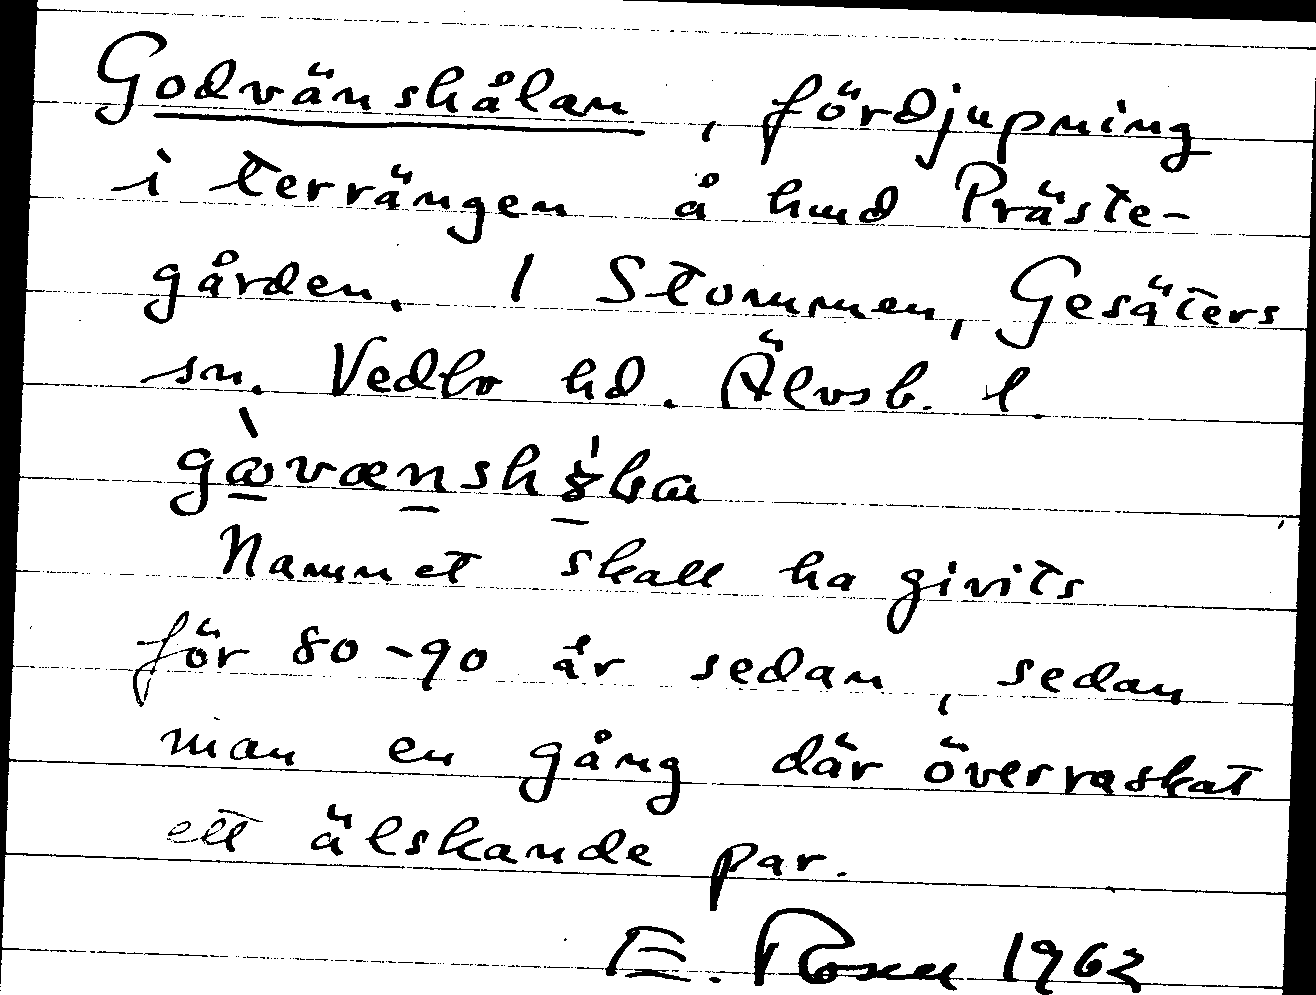 Godvänshålan, fördjupning
i terrängen å hmd Präste-
gården. 1 Stommen, Gesäters
sn. Vedbo hd. Älvsb. l.
Namnet skall ha givits
för 80-90 år sedan, sedan
man en gång där överraskat
ett älskande par.
E. Rosen 1962